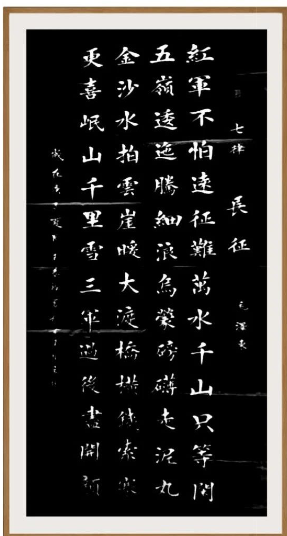 七律 長征 毛澤東
紅軍不怕遠征難萬水千山只等閒
五嶺逶迤騰細浪烏蒙磅礴走泥丸
金沙水拍雲崖暖大渡橋橫鐵索寒
更喜岷山千里雪三軍過後盡開顏
歲在